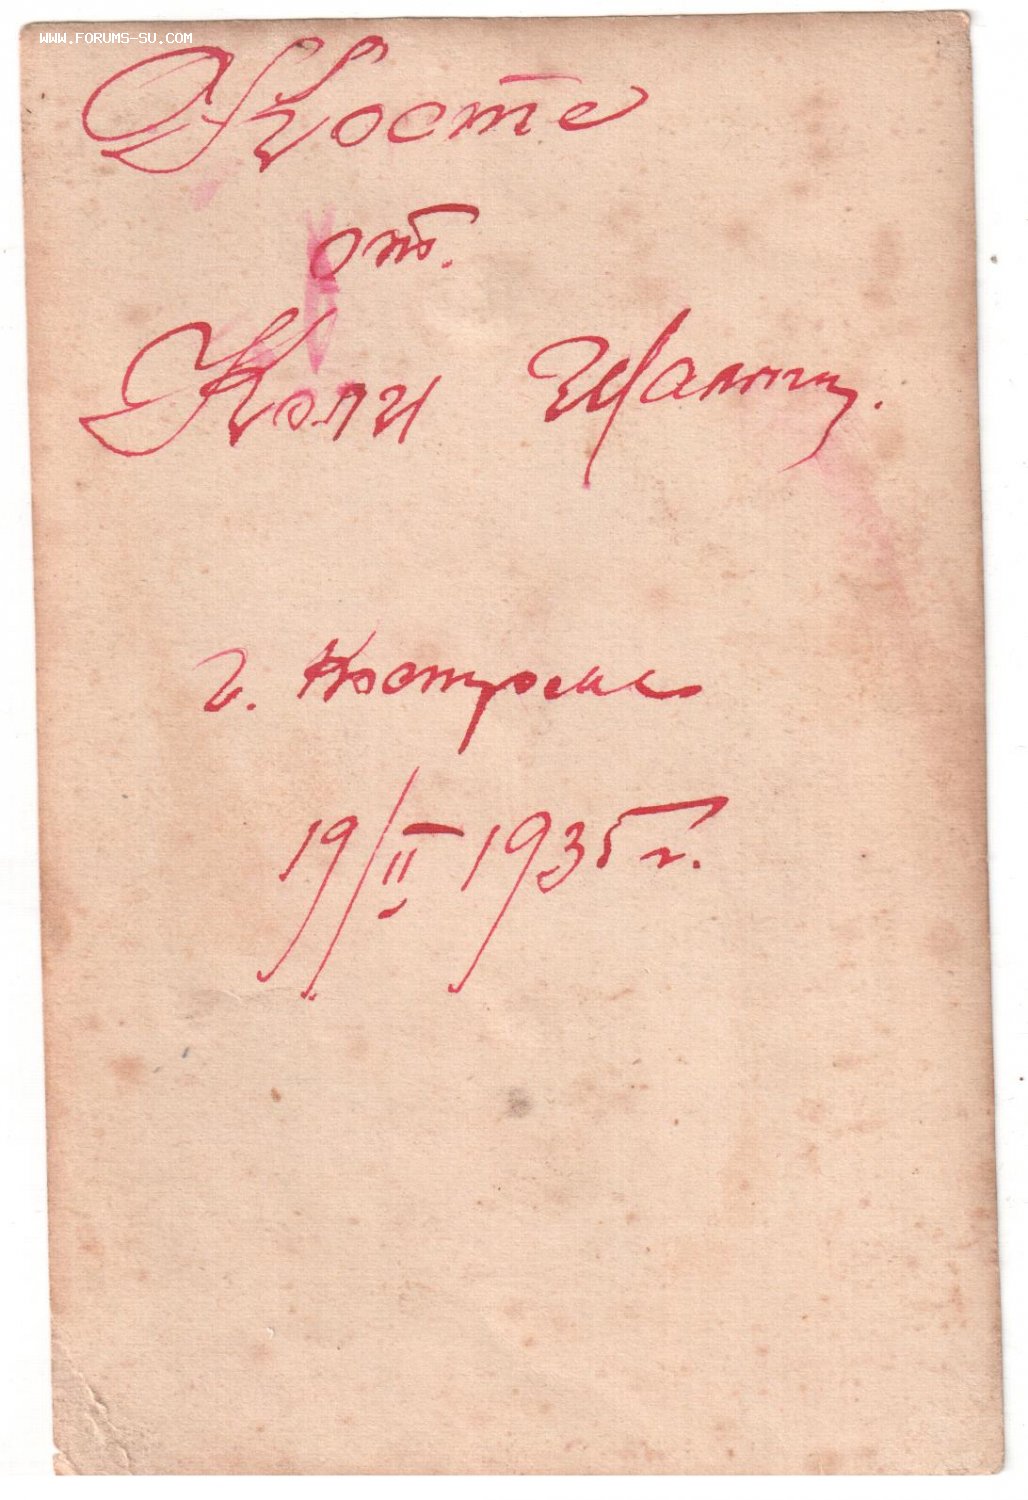 WWW.FORUMS-SU.COM
Косте
от
Коли
г. Кострома
19/II 1935 г.